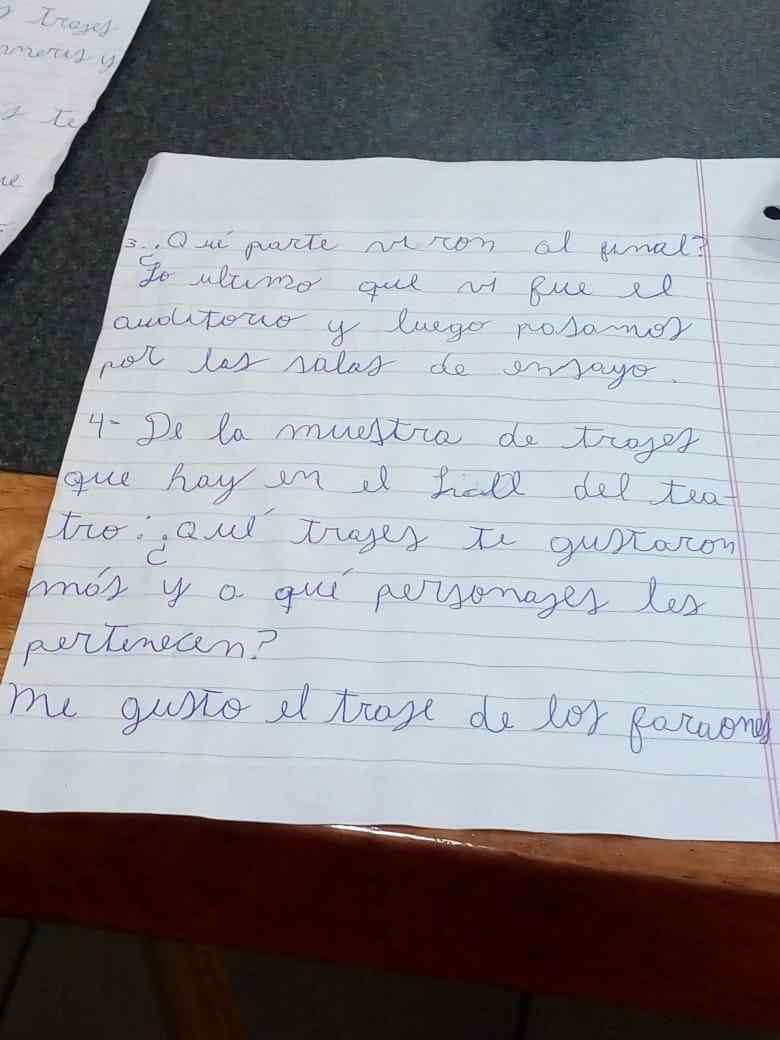 s trajes
meris y
s te
ue
3-¿Qué parte viron al final?
Lo ultimo que vi fue el
auditorio y luego pasamos
por las salas de ensayo.
4- De la muestra de trajes
que hay en el hall del tea-
tro: ¿Qué trajes te gustaron
más y a qué personajes les
pertenecen?
Me gusto el traje de los faraones